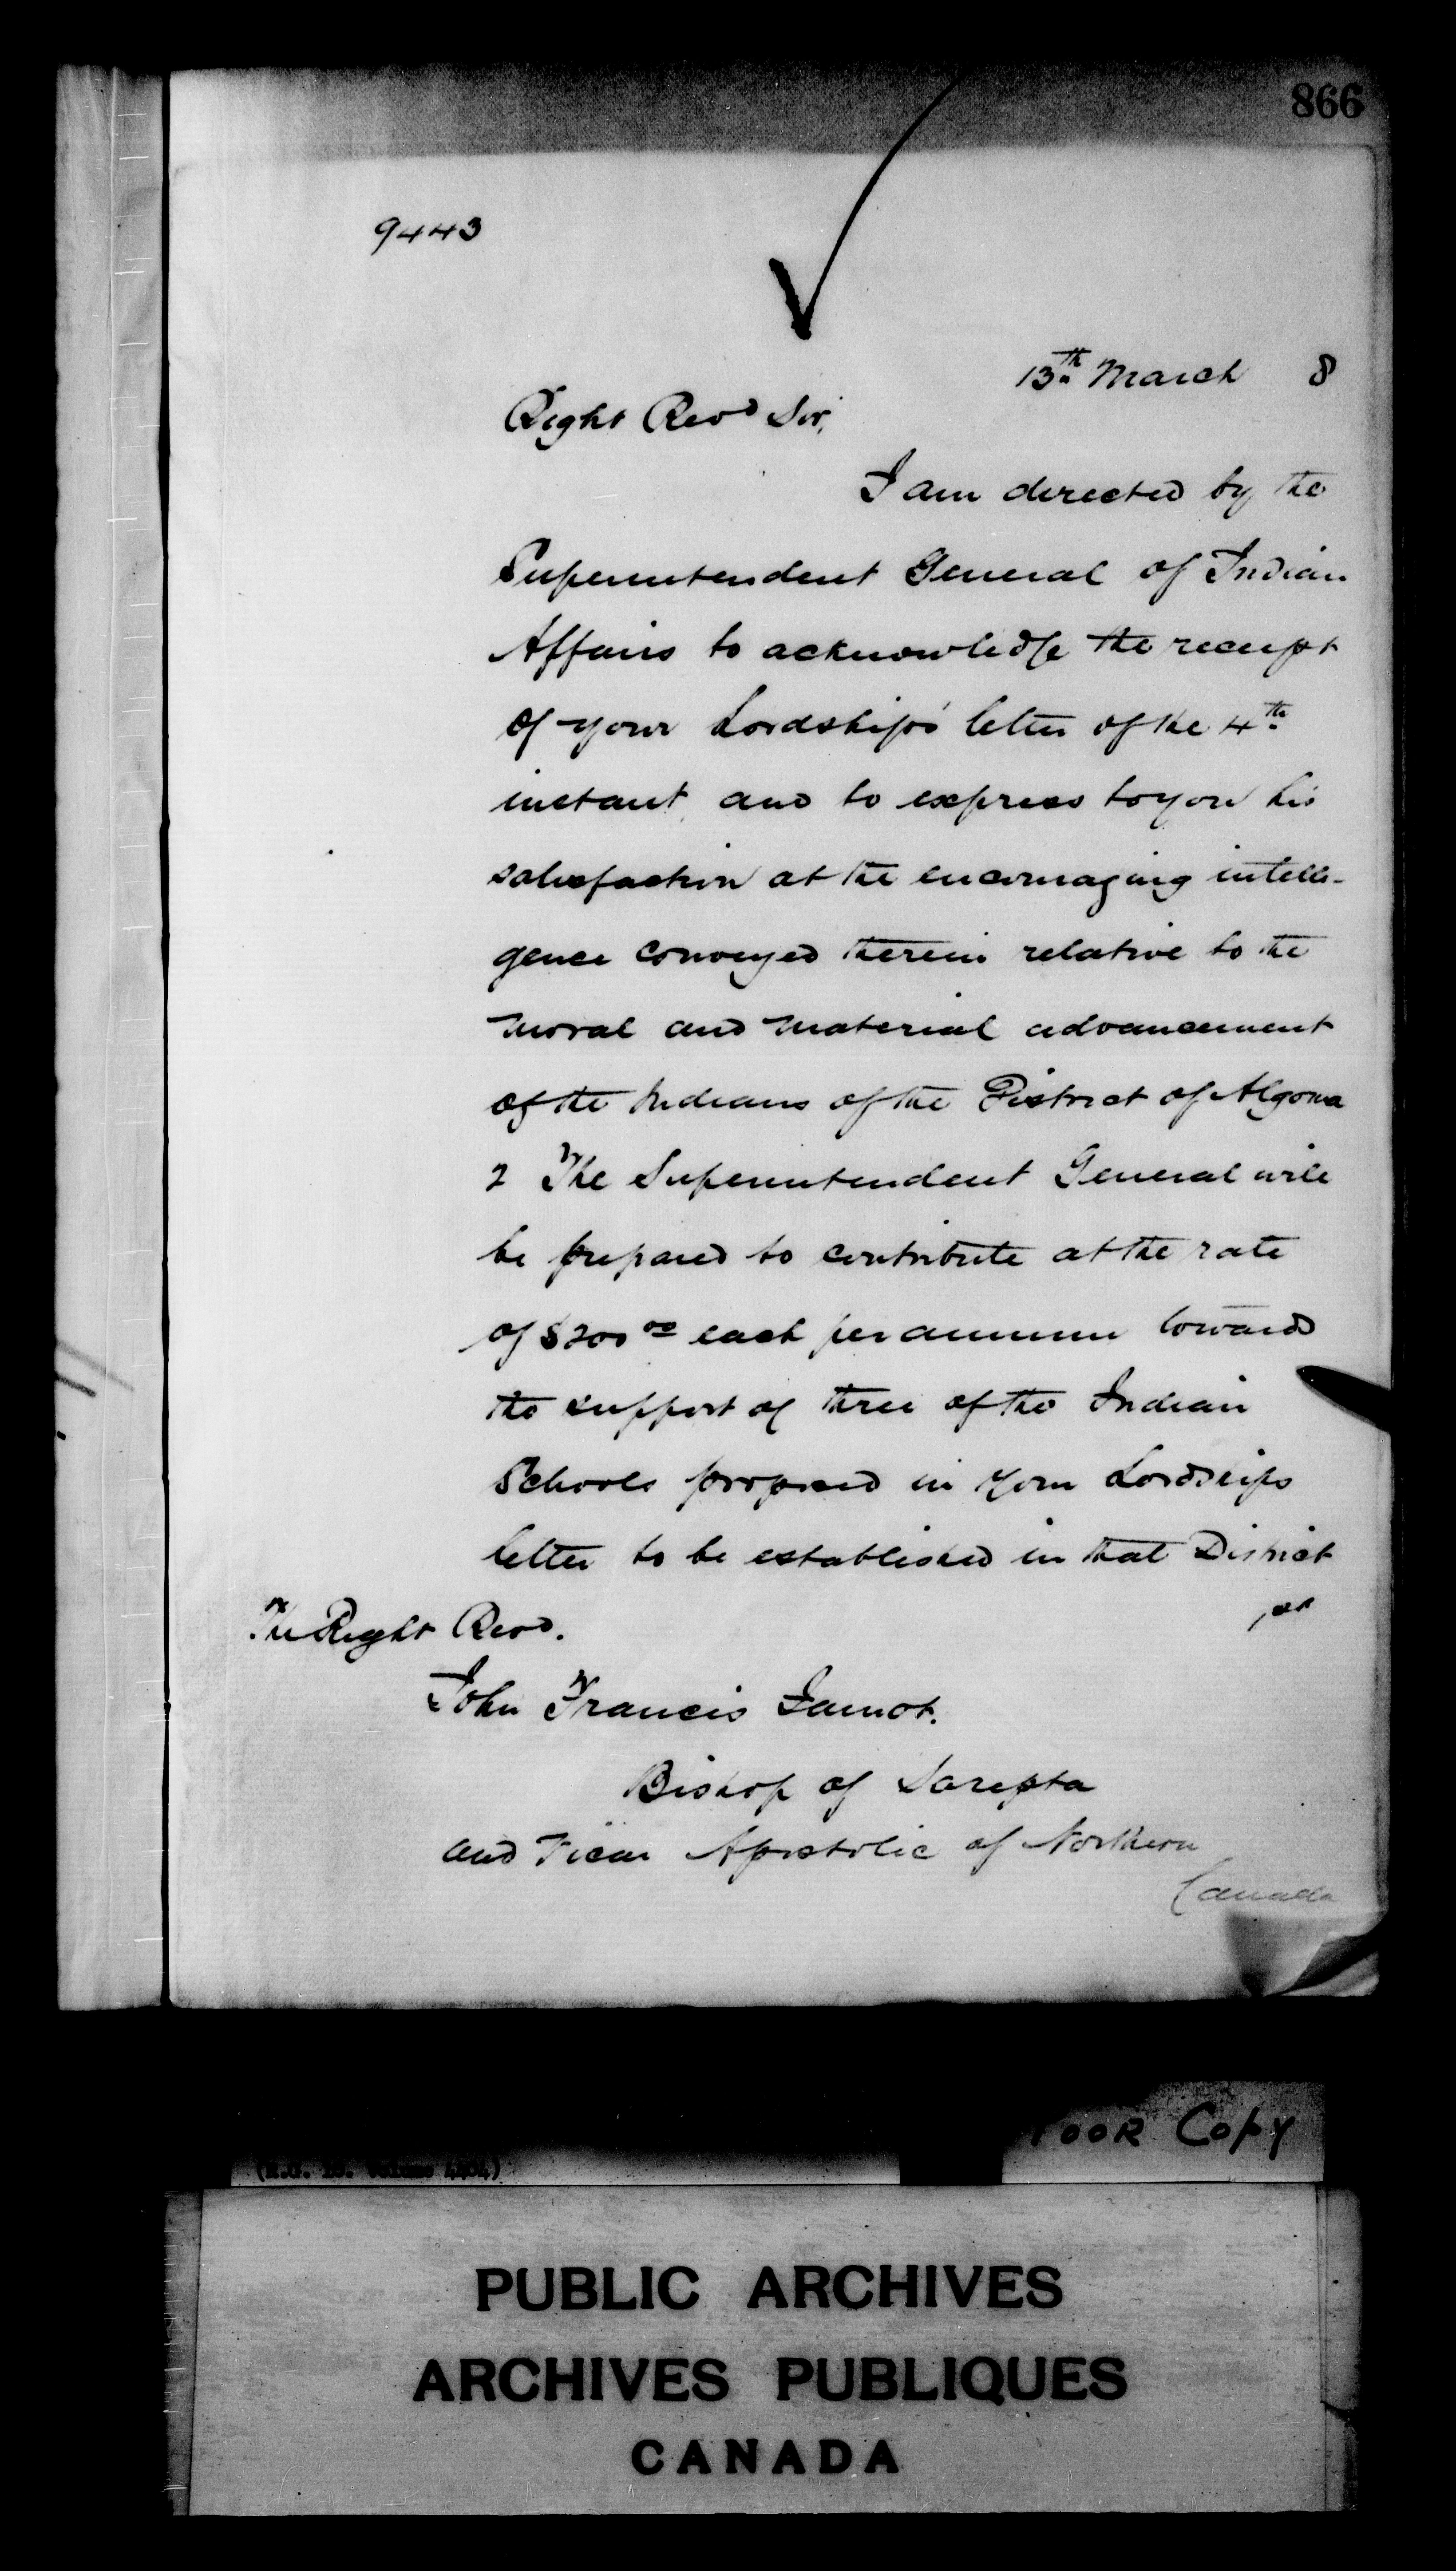 866
9443
13th March 8
Right Revd Sir,
I am directed by the
Superintendent General of Indian
Affairs to acknowledge the receipt
of your Lordship's letter of the 4th
instant, and to express to you his
satisfaction at the encouraging intelli-
gence conveyed therein relative to the
moral and material advancement
of the Indians of the District of Algoma
2 The Superintendent General will
be prepared to contribute at the rate
of $200 00 each per annum towards
the support of three of the Indian
Schools proposed in your Lordships
letter to be established in that District
The Right Revd.
John Francis Jamot.
Bishop of Sarepta
and Vicar Apostolic of Northern
Canada
POOR COPY
PUBLIC ARCHIVES
ARCHIVES PUBLIQUES
CANADA